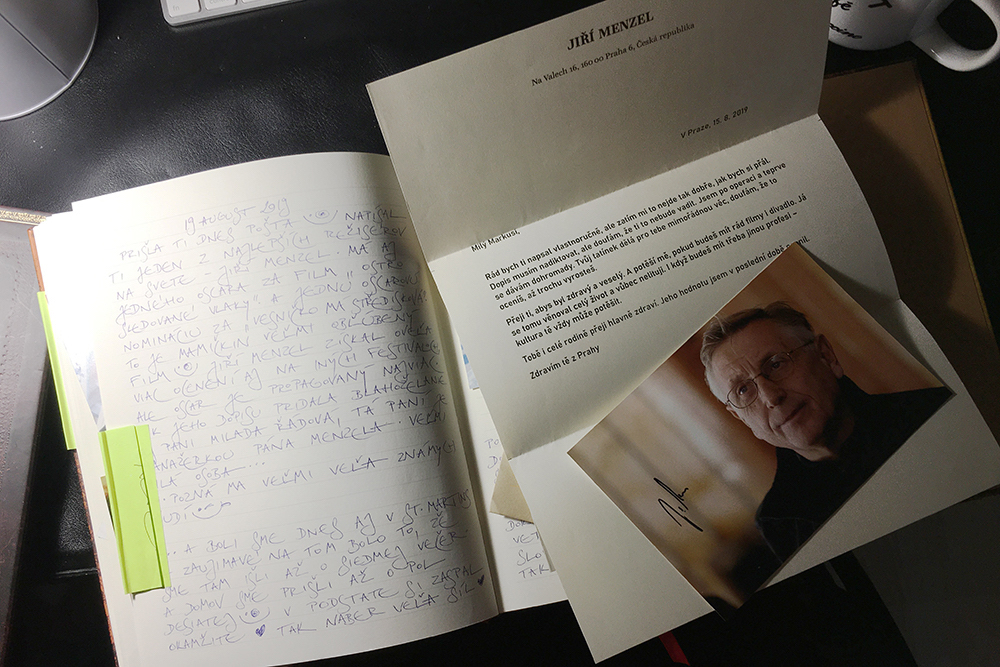 19 AUGUST 2019
PRIŠLA TI DNES POŠTA... NAPÍSAL
TI JEDEN Z NAJLEPŠÍCH REŽISÉROV
NA SVETE - JIŘÍ MENZEL. MÁ AJ
JEDNÉHO OSCARA ZA FILM „OSTRO
SLEDOVANÉ VLAKY" A JEDNU OSCAROVÚ
NOMINÁCIU ZA „VESNIČKO MÁ STŘEDISKOVÁ
TO JE MAMIČKIN VEĽMI OBĽÚBENÝ
FILM JIŘÍ MENZEL ZÍSKAL OVEĽA
VIAC OCENENÍ AJ NA INÝCH FESTIVALOCH
ALE OSCAR JE PROPAGOVANÝ NAJVIAC
K JEHO DOPISU PRIDALA BLAHOŽELANIE
PANI MILADA ŘADOVÁ, TÁ PANI JE
PÁNA MENZELA. VEĽMI
MILÁ OSOBA...
POZNÁ MA VEĽMI VEĽA ZNÁMYCH
ĽUDÍ
... A BOLI SME DNES AJ V ST. MARTINS
ZAUJÍMAVÉ NA TOM BOLO TO, ŽE
SME TAM IŠLI AŽ O SIEDMEJ VEČER
A DOMOV SME PRIŠLI AŽ O POL
DESIATEJ V PODSTATE SI ZASPAL
OKAMŽITE TAK NABER VEĽA SÍL
JIŘÍ MENZEL
Na Valech 16, 160 00 Praha 6, Česká republika
V Praze, 15. 8. 2019
Milý Markusi,
Rád bych ti napsal vlastnoručně, ale zatím mi to nejde tak dobře, jak bych si přál.
Dopis musím nadiktovat, ale doufám, že ti to nebude vadit. Jsem po operaci a teprve
se dávám dohromady. Tvůj tatínek dělá pro tebe mimořádnou věc, doufám, že to
oceníš, až trochu vyrosteš.
Přeji ti, abys byl zdravý a veselý. A potěší mě, pokud budeš mít rád filmy i divadlo. Já
se tomu věnoval celý život a vůbec nelituji. I když budeš mít třeba jinou profesi –
kultura tě vždy může potěšit.
Tobě i celé rodině přeji hlavně zdraví. Jeho hodnotu jsem v poslední době
Zdravím tě z Prahy